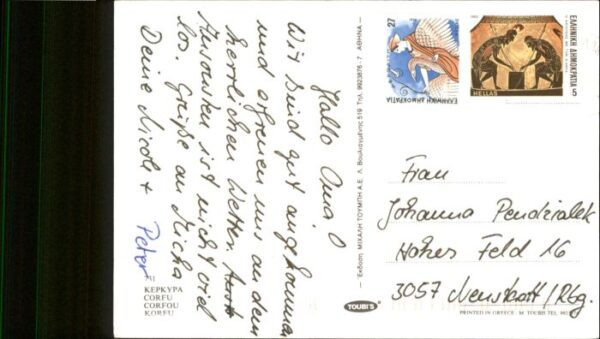 Hallo Oma!
Wir sind gut angekommen
und erfreuen uns an dem
herrlichen Wetter. Auch
Ansonsten ist nicht viel
los. Grüße an Micha
Deine Nicole +
Peter
ΚΕΡΚΥΡΑ
CORFU
CORFOU
KORFU
— Έκδοση: ΜΙΧΑΛΗ ΤΟΥΜΠΗ Α.Ε. Λ. Βουλιαγμένης 519 Τηλ. 9923876 - 7 ΑΘΗΝΑ —
TOUBI'S
27
ΕΛΛΗΝΙΚΗ ΔΗΜΟΚΡΑΤΙΑ
ΕΛΛΗΝΙΚΗ ΔΗΜΟΚΡΑΤΙΑ
5
HELLAS
Frau
Johanna Pendzialek
Hohes Feld 16
3057 Neustadt/Rbg.
PRINTED IN GREECE - M. TOUBIS TEL.